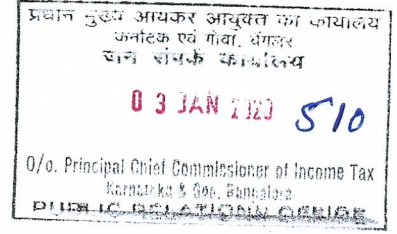 प्रधान मुख्य आयकर आयुक्त का कार्यालय
कर्नाटक एवं गोवा, बेंगलूर
जन संपर्क कार्यालय
03 JAN 2020 510
O/o. Principal Chief Commissioner of Income Tax
Karnataka & Goa, Bangalore
PUBLIC RELATIONS OFFICE